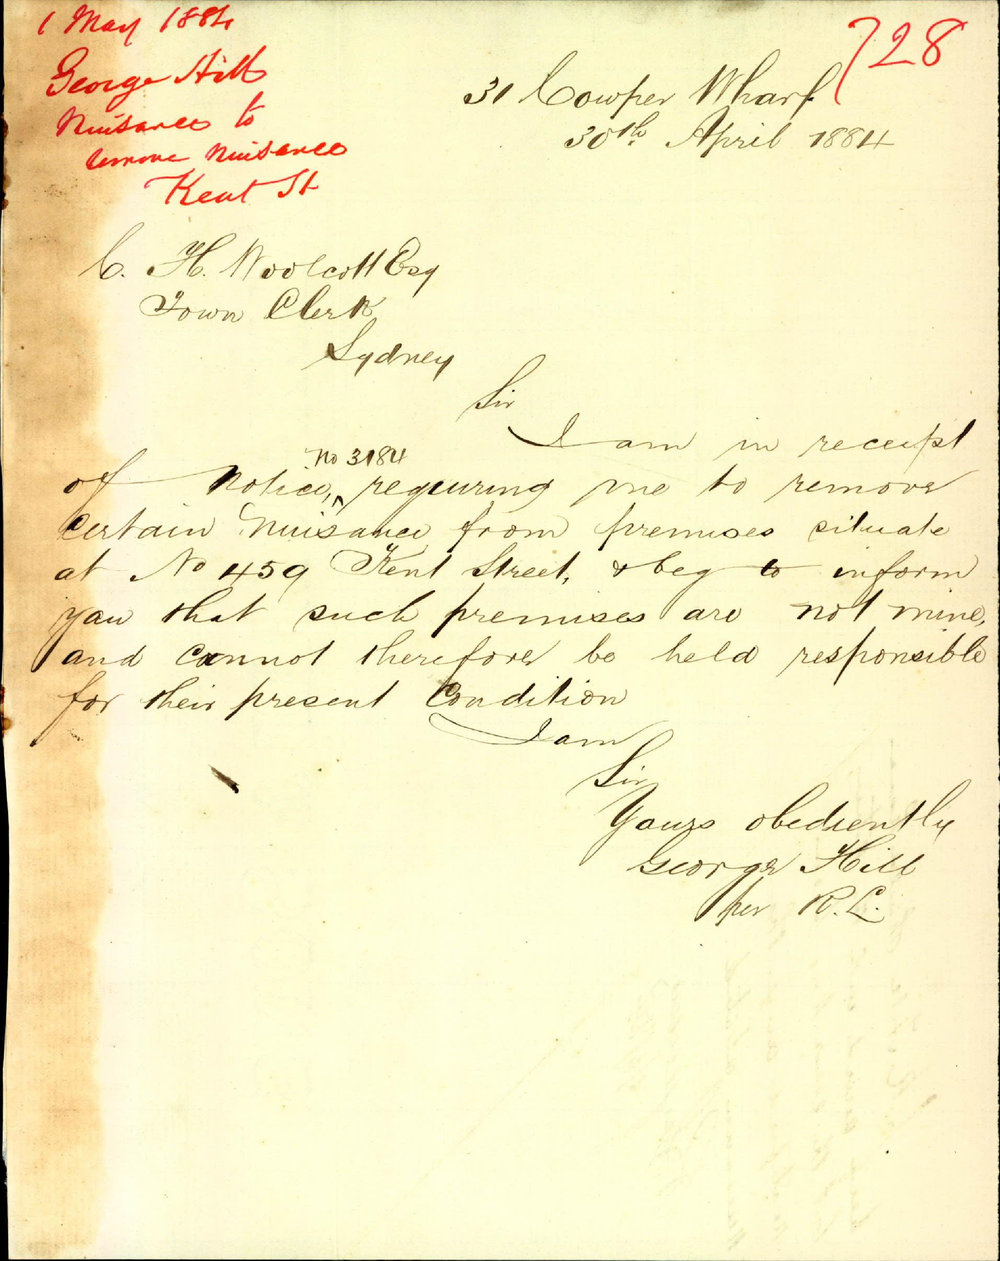 1 May 1884
George Hill
Nuisance to
remove nuisance
Kent St
728
31 Cowper Wharf
30th April 1884
C. H. Woolcott Esq
Town Clerk
Sydney
Sir
I am in receipt
of Notice, no 3184 requiring me to remove
certain Nuisance from premises situate
at No 459 Kent Street, & beg to inform
you that such premises are not mine,
and cannot therefore be held responsible
for their present Condition
I am
Sir
Yours obediently
George Hill
per R. L.